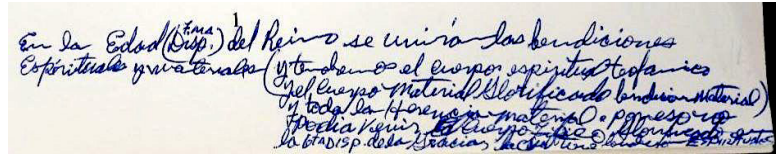 En la Edad (7ma Disp.) del Reino se unirán las bendiciones
Espirituales y materiales (y tendremos el cuerpo espiritual teofánico
y el cuerpo Material Glorificado bendicion Material)
y toda la Herencia material. por eso no
podia venir el cuerpo Glorificado
la 6ta DISP. de la Gracia,